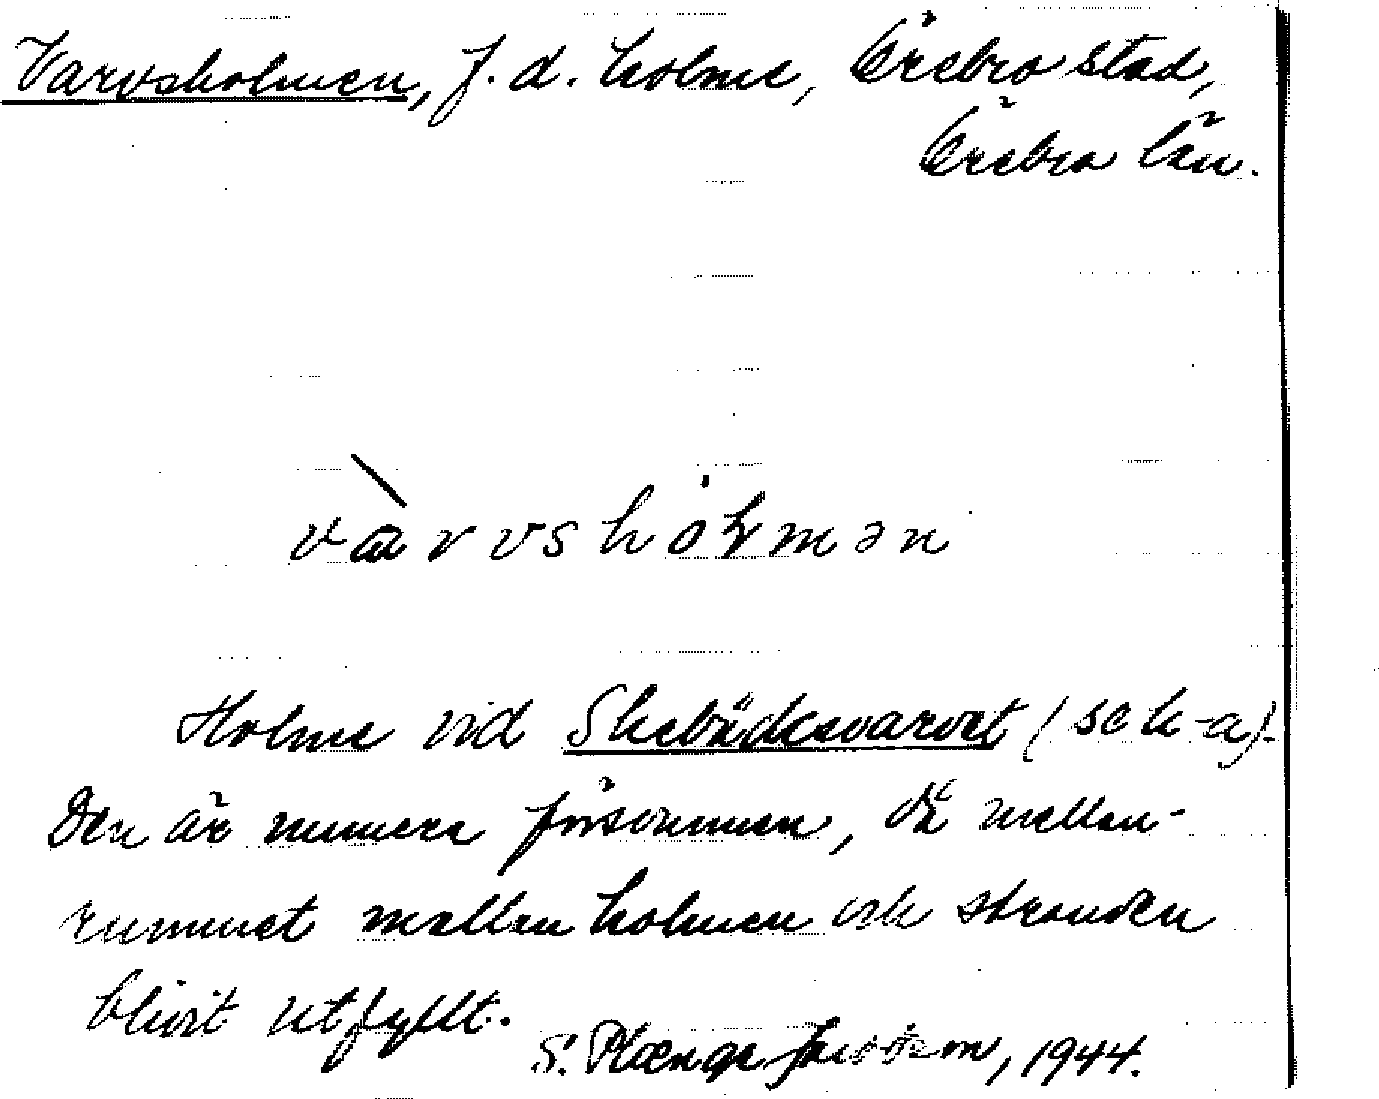 Varvsholmen, f.d. holme, Örebro stad,
Örebro län.
vàrvshòłmən
Holme vid Skebäcksvarvet (se k-a).
Den är numera försvunnen, då mellan-
rummet mellan holmen och stranden
blivit utfyllt.
S. Plænge Jacobson, 1944.